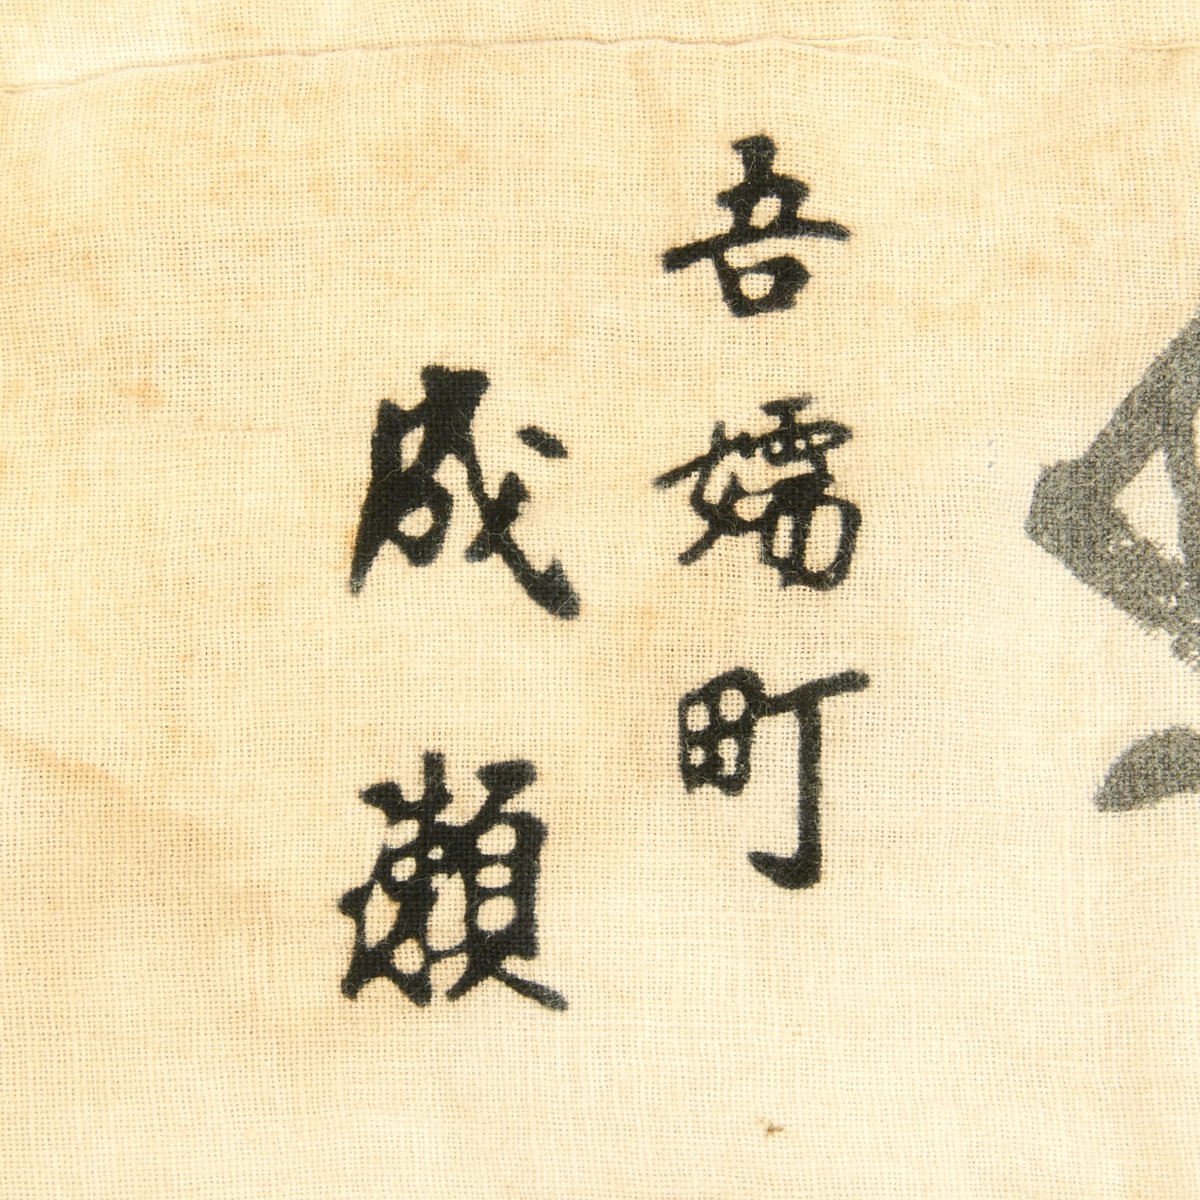 吾嬬町
成瀬